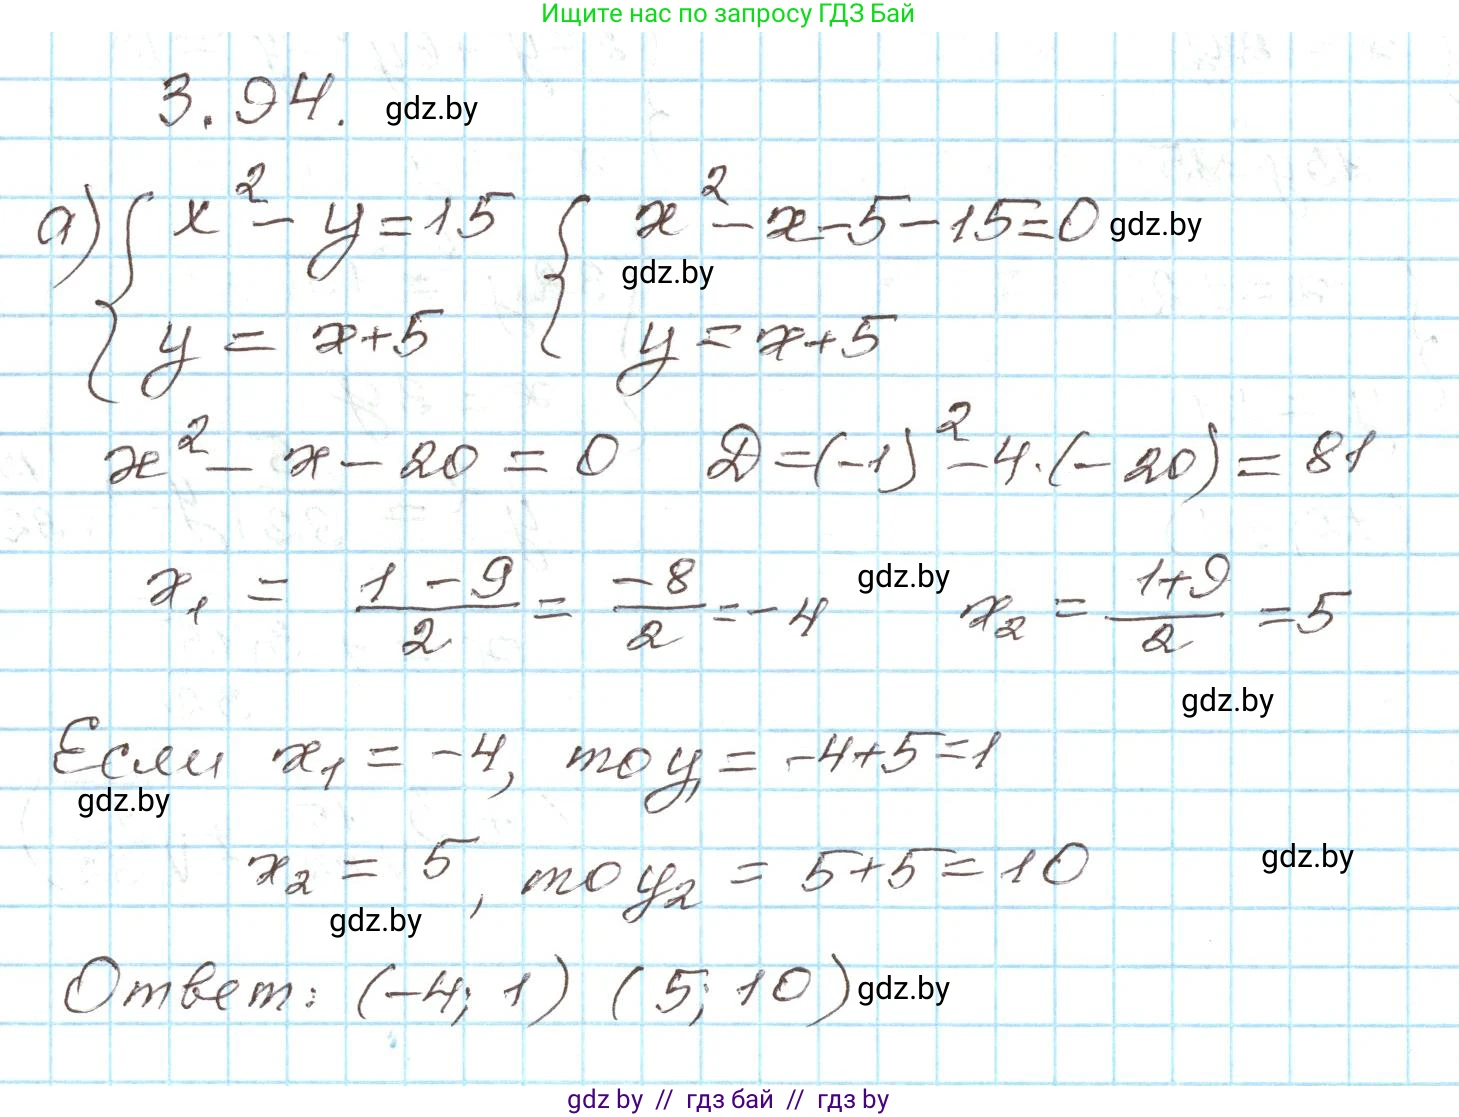 Ищите нас по запросу ГДЗ Бай
3.94. gdz.by
а) { x² - y = 15 { x² - x - 5 - 15 = 0 gdz.by
gdz.by
y = x + 5 y = x + 5
x² - x - 20 = 0 D = (-1)² - 4·(-20) = 81
x₁ = (1 - 9)/2 = -8/2 = -4 gdz.by x₂ = (1+9)/2 = 5
gdz.by
Если x₁ = -4, то y₁ = -4+5 = 1
gdz.by
x₂ = 5, то y₂ = 5+5 = 10 gdz.by
gdz.by
Ответ: (-4; 1) (5; 10) gdz.by
gdz.by // гдз бай // гдз by